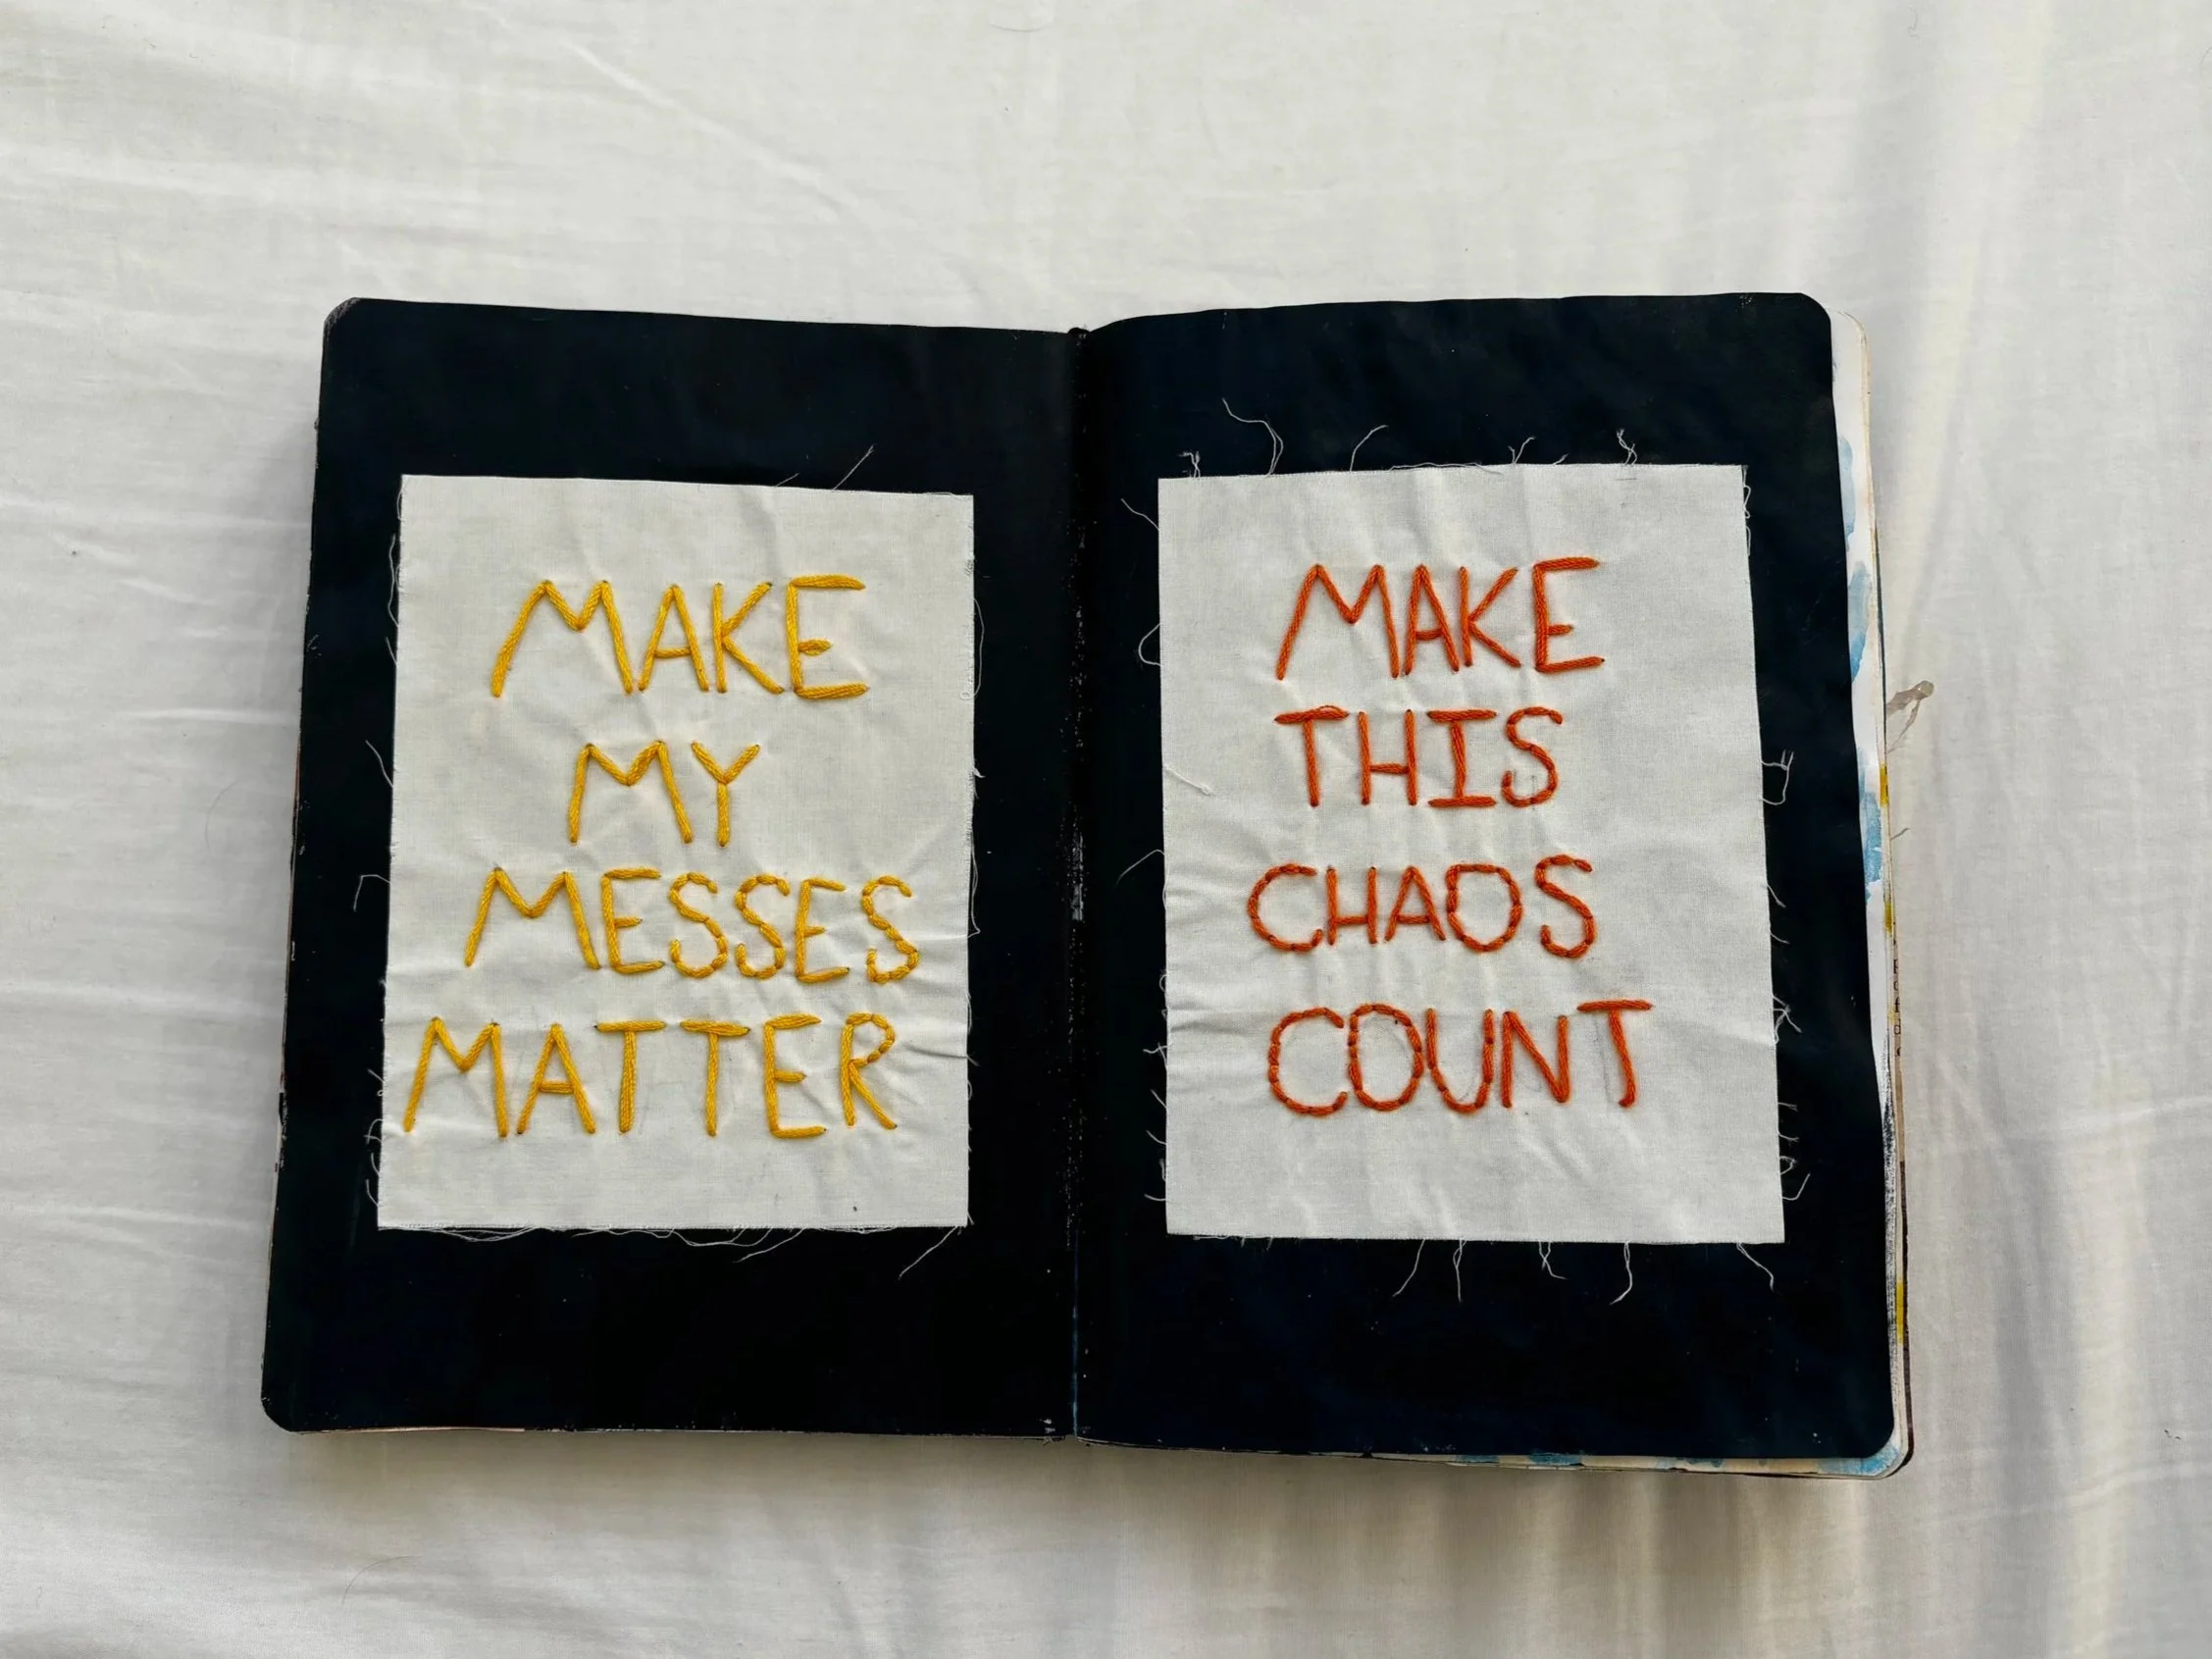 MAKE
MY
MESSES
MATTER
MAKE
THIS
CHAOS
COUNT